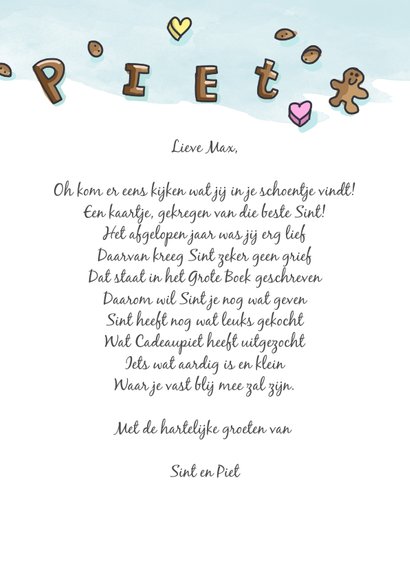 PIEt
Lieve Max,
Oh kom er eens kijken wat jij in je schoentje vindt!
Een kaartje, gekregen van die beste Sint!
Het afgelopen jaar was jij erg lief
Daarvan kreeg Sint zeker geen grief
Dat staat in het Grote Boek geschreven
Daarom wil Sint je nog wat geven
Sint heeft nog wat leuks gekocht
Wat Cadeaupiet heeft uitgezocht
Iets wat aardig is en klein
Waar je vast blij mee zal zijn.
Met de hartelijke groeten van
Sint en Piet